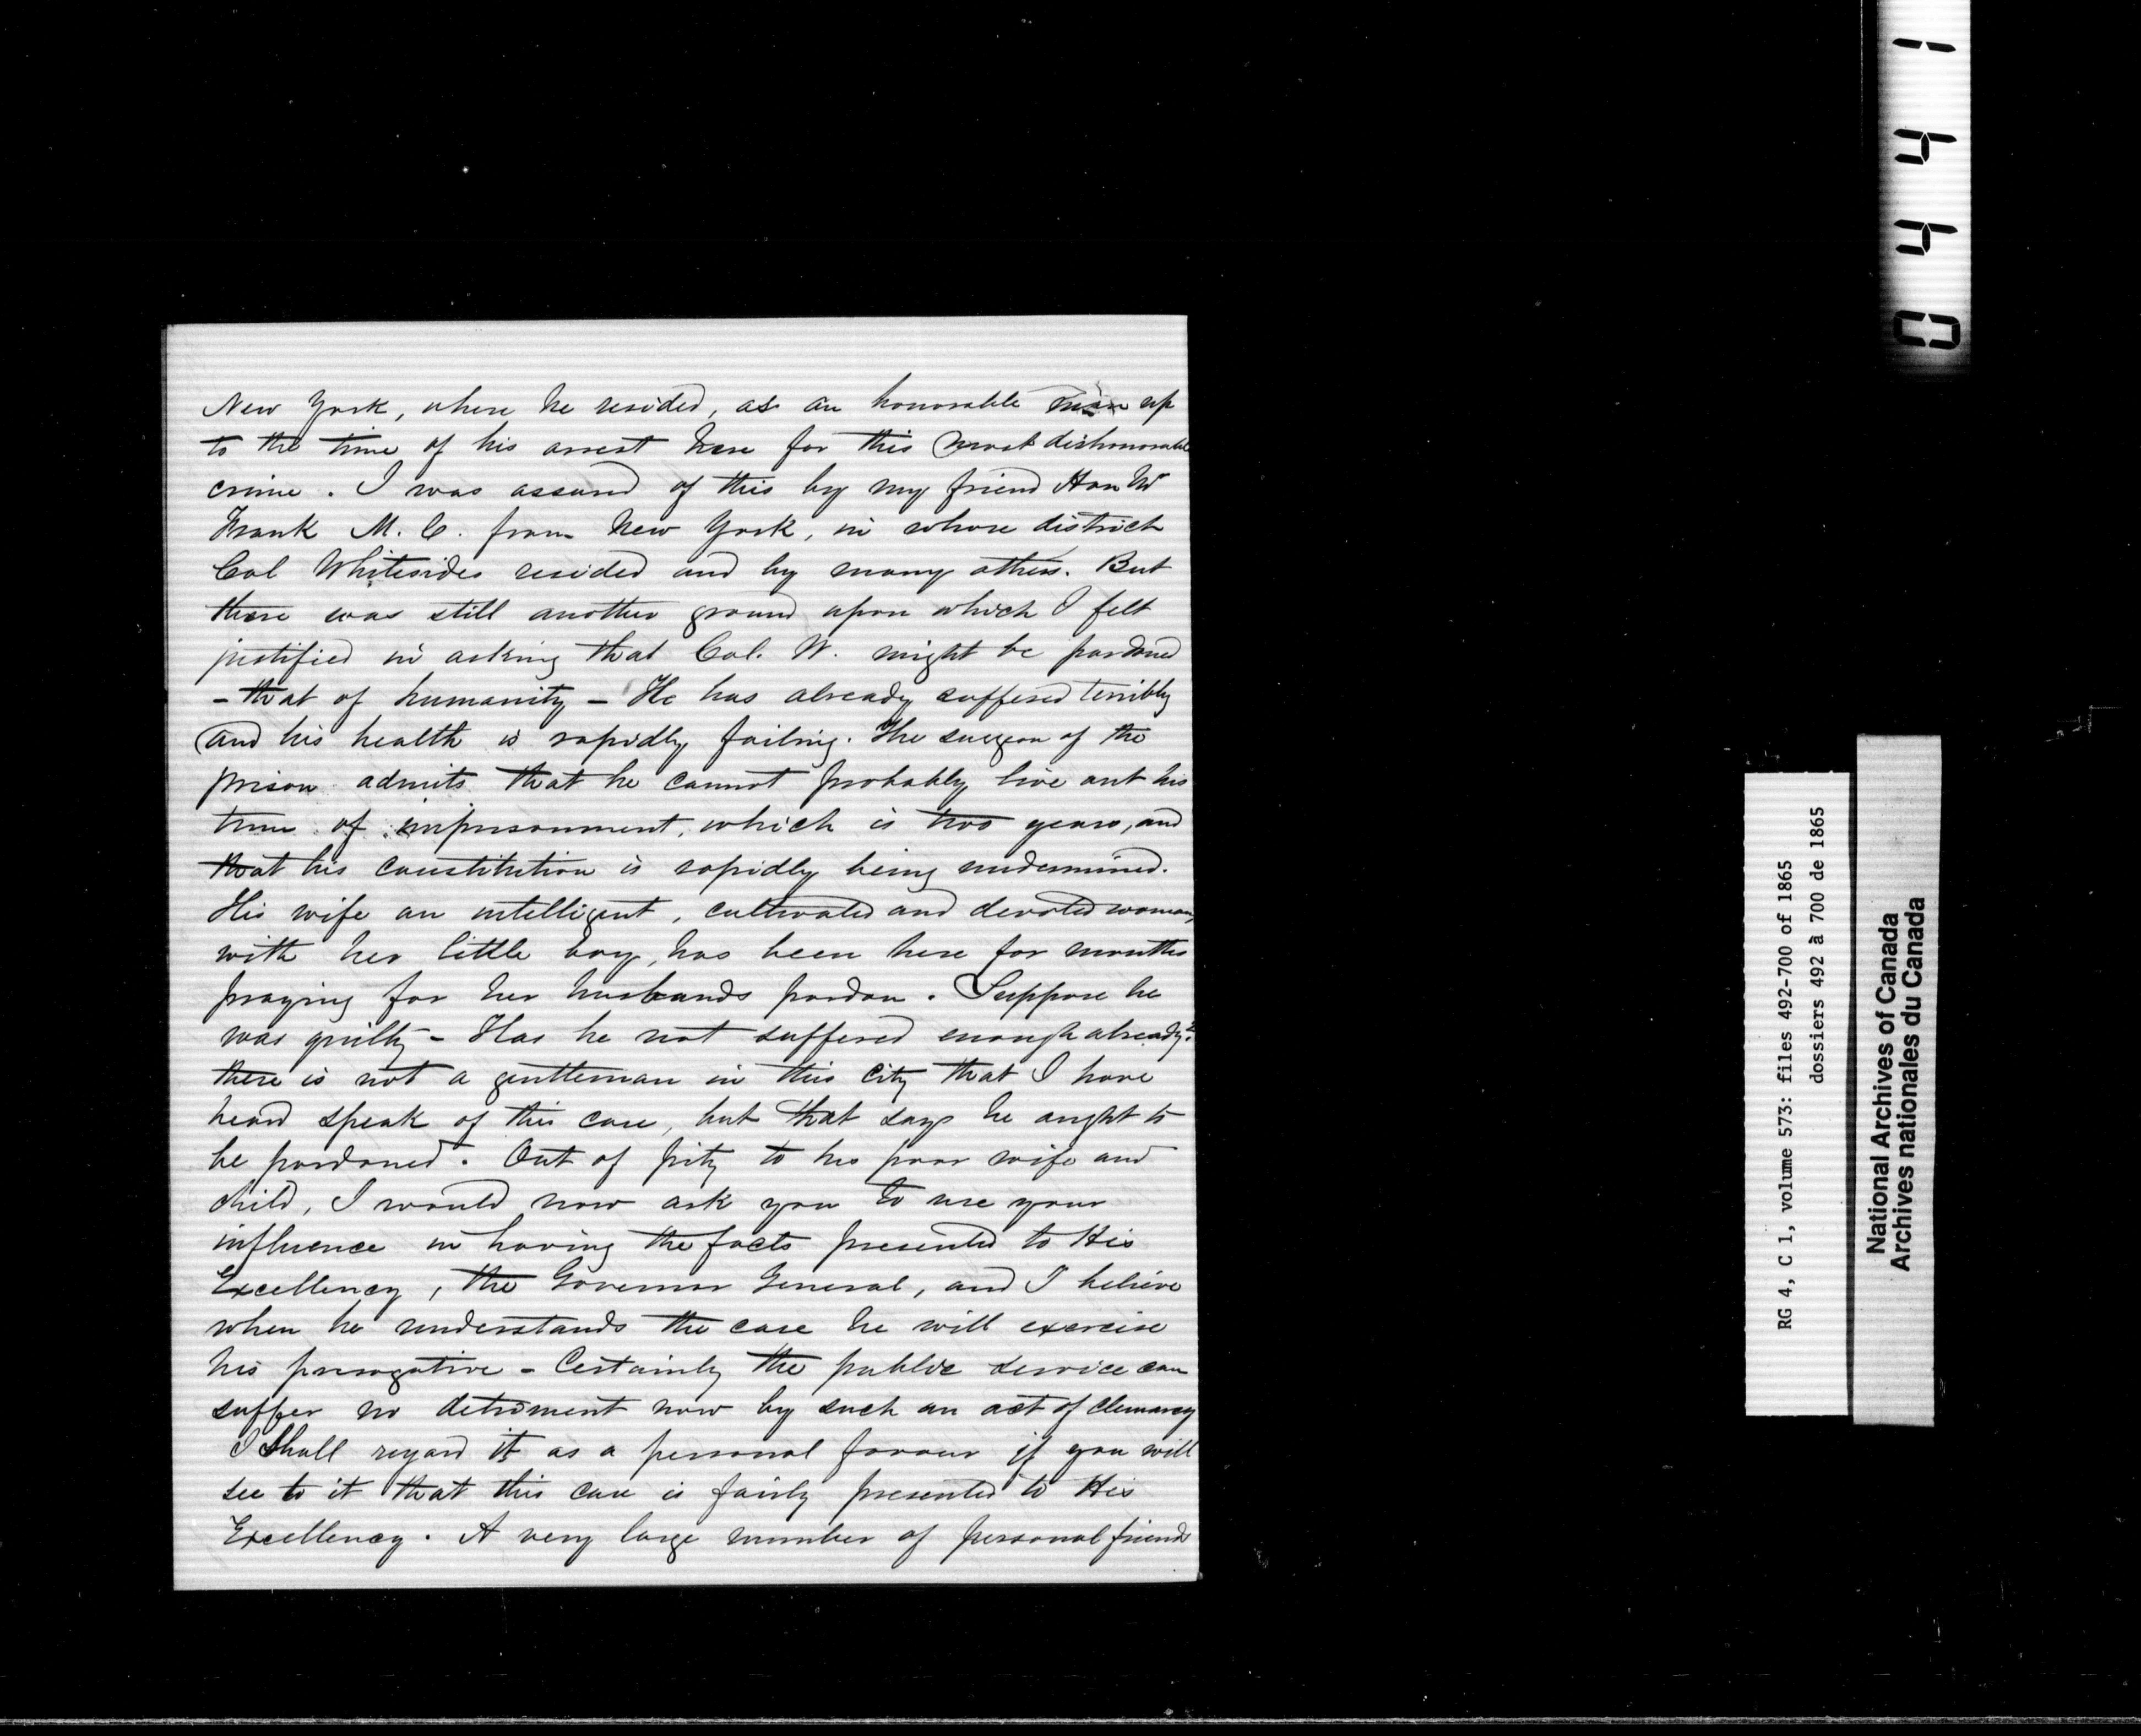 New York, where he resided, as an honorable man up
to the time of his arrest here for this most dishonorable
crime. I was assured of this by my friend Hon Mr
Frank M. C. from New York, in whose district
Col Whitesides resided and by many others. But
there was still another ground upon which I felt
justified in asking that Col. W. might be pardoned
- that of humanity - He has already suffered terribly
and his health is rapidly failing. The surgeon of the
prison admits that he cannot probably live out his
time of imprisonment, which is two years, and
that his constitution is rapidly being undermined.
His wife an intelligent, cultivated and devoted woman,
with her little boy, has been here for months
praying for her husbands pardon. Suppose he
was guilty - Has he not suffered enough already?
there is not a gentleman in this City that I have
heard speak of this case, but that says he ought to
be pardoned. Out of pity to his poor wife and
child, I would now ask you to use your
influence in having the facts presented to His
Excellency, the Governor General, and I believe
when he understands the case he will exercise
his prerogative - Certainly the public service can
suffer no detriment now by such an act of clemancy
I Shall regard it as a personal favour if you will
see to it that this case is fairly presented to His
Excellency. A very large number of personal friends
0441
RG 4, C 1, volume 573: files 492-700 of 1865
dossiers 492 à 700 de 1865
National Archives of Canada
Archives nationales du Canada